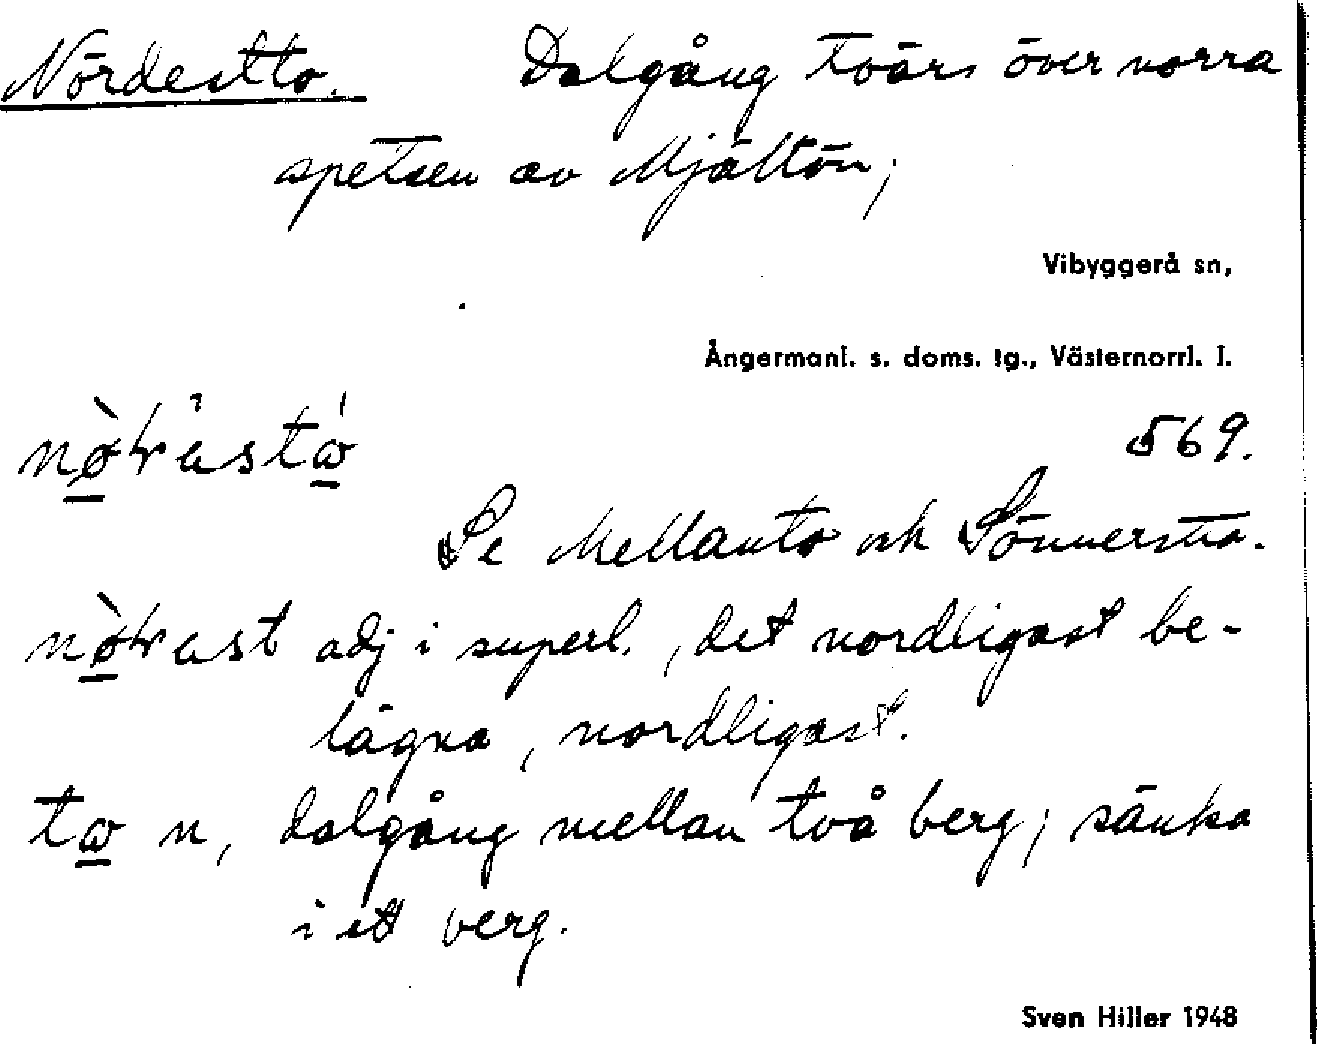 Nördestto. Dalgång tvärs över norra
spetsen av Mjältön;
Vibyggerå sn,
Ångermanl. s. doms. tg., Västernorrl. l.
569.
Se Mellanto och Sönnersto.
adj i superl., det nordligast be-
lägna, nordligast.
n, dalgång mellan två berg; sänka
i ett berg.
Sven Hiller 1948